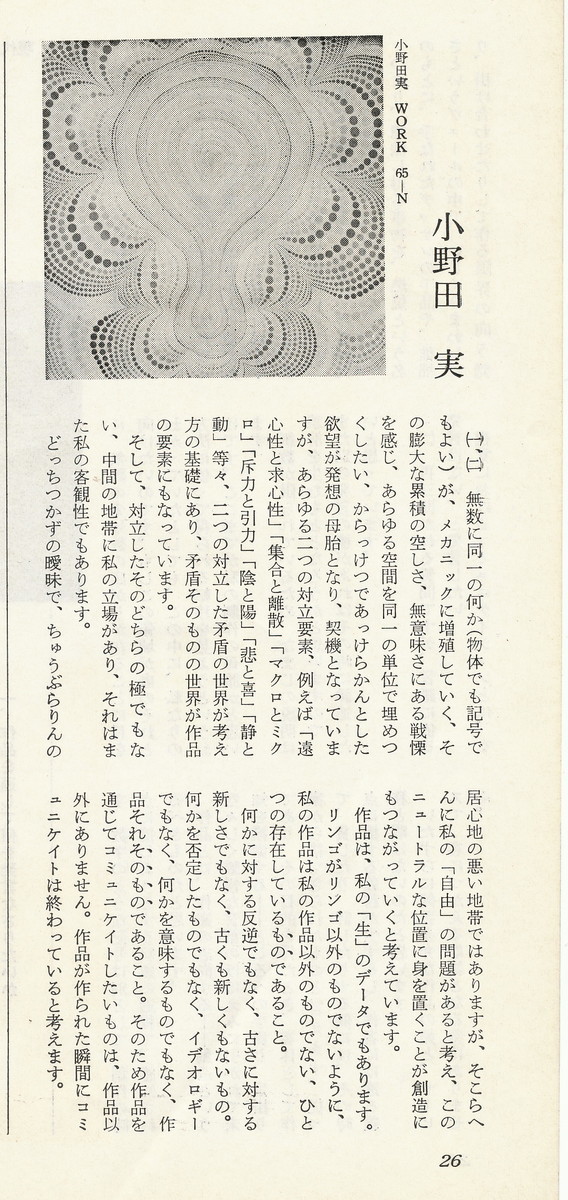 小野田実 WORK 65—N
小野田 実
㈠、㈡ 無数に同一の何か（物体でも記号で
もよい）が、メカニックに増殖していく、そ
の膨大な累積の空しさ、無意味さにある戦慄
を感じ、あらゆる空間を同一の単位で埋めつ
くしたい、からっけつであっけらかんとした
欲望が発想の母胎となり、契機となっていま
すが、あらゆる二つの対立要素、例えば「遠
心性と求心性」「集合と離散」「マクロとミク
ロ」「斥力と引力」「陰と陽」「悲と喜」「静と
動」等々、二つの対立した矛盾の世界が考え
方の基礎にあり、矛盾そのものの世界が作品
の要素にもなっています。
そして、対立したそのどちらの極でもな
い、中間の地帯に私の立場があり、それはま
た私の客観性でもあります。
どっちつかずの曖昧で、ちゅうぶらりんの
居心地の悪い地帯ではありますが、そこらへ
んに私の「自由」の問題があると考え、この
ニュートラルな位置に身を置くことが創造に
もつながっていくと考えています。
作品は、私の「生」のデータでもあります。
リンゴがリンゴ以外のものでないように、
私の作品は私の作品以外のものでない、ひと
つの存在しているものであること。
何かに対する反逆でもなく、古さに対する
新しさでもなく、古くも新しくもないもの。
何かを否定したものでもなく、イデオロギー
でもなく、何かを意味するものでもなく、作
品それそのものであること。そのため作品を
通じてコミュニケイトしたいものは、作品以
外にありません。作品が作られた瞬間にコミ
ュニケイトは終わっていると考えます。
26